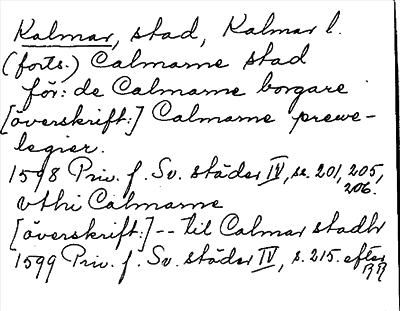 Kalmar, stad, Kalmar l.
(forts.) Calmarne stad
för: de Calmarne borgare
[överskrift:] Calmarne prewe-
legier.
1598 Priv. f. Sv. städer IV, ss. 201, 205,
206.
vthi Calmarne
[överskrift:] -- til Calmar stadh
1599 Priv. f. Sv. städer IV, s. 215. efter